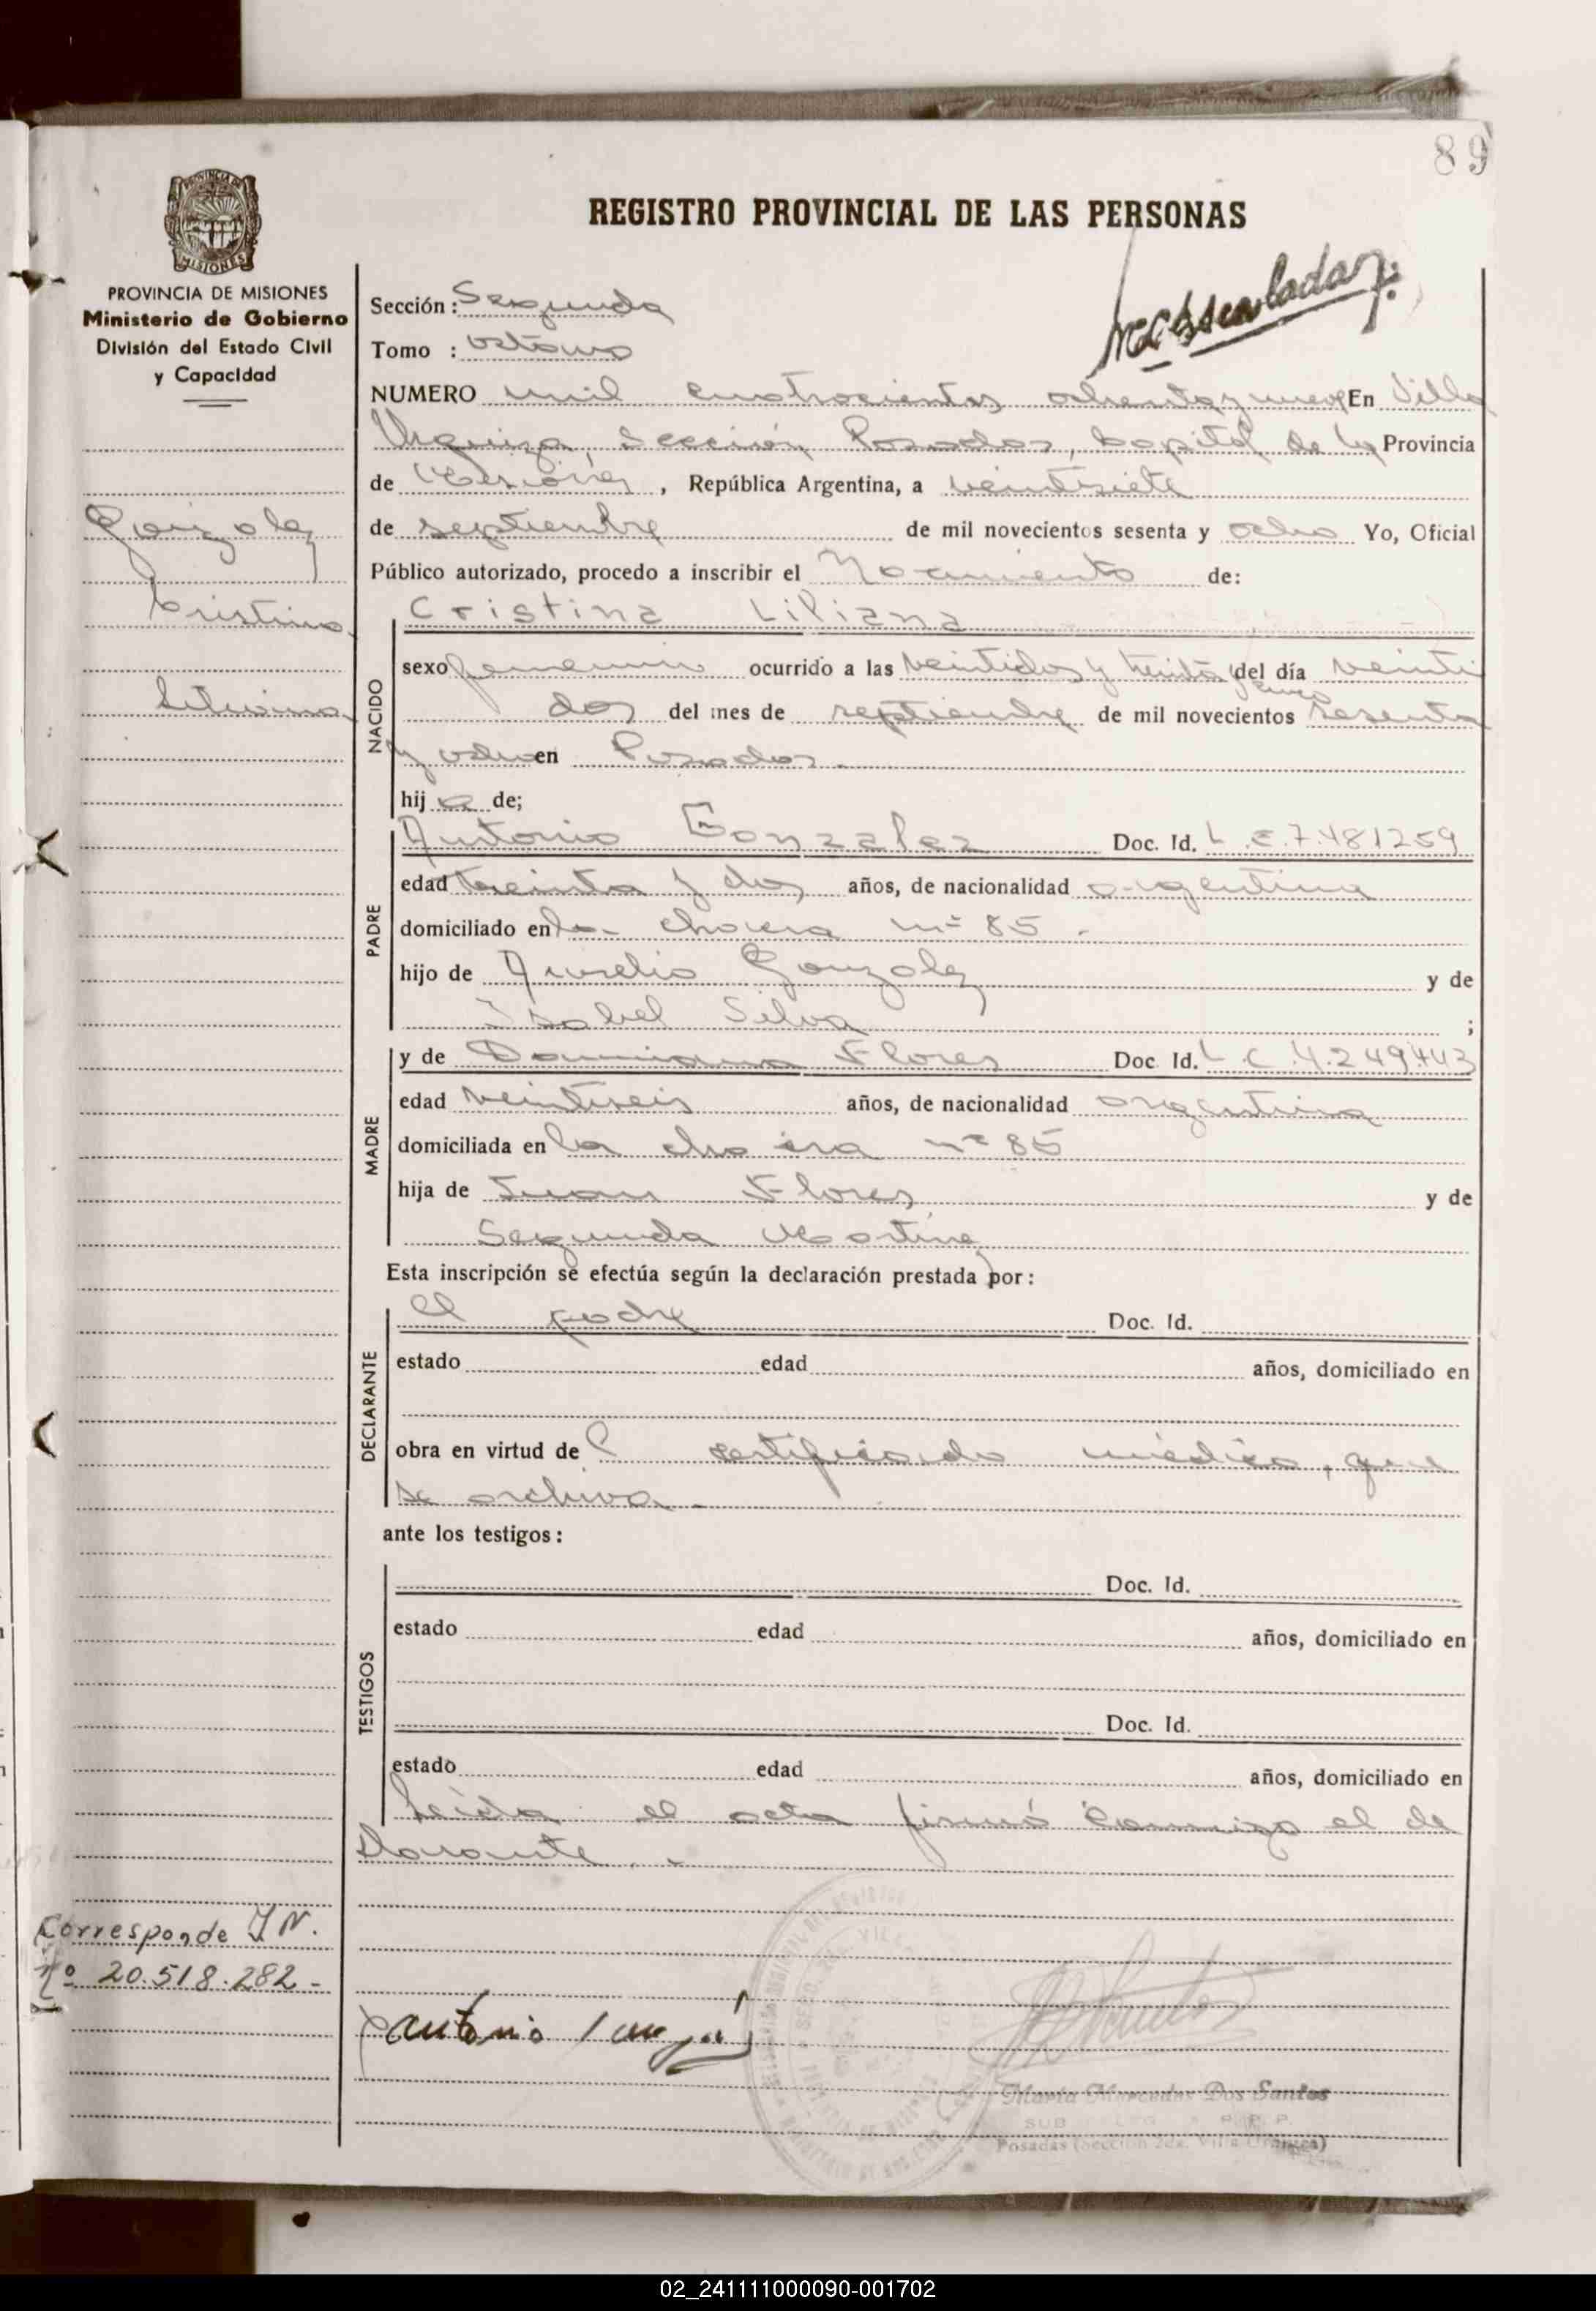 89
REGISTRO PROVINCIAL DE LAS PERSONAS
PROVINCIA DE
MISIONES
PROVINCIA DE MISIONES
Ministerio de Gobierno
División del Estado Civil
y Capacidad
Sección: Segunda
Tomo : octavo
NUMERO mil cuatrocientos ochenta y nueve En Villa
Urquiza, Sección Posadas, Capital de la Provincia
de Misiones, República Argentina, a veintisiete
de septiembre de mil novecientos sesenta y ocho Yo, Oficial
Público autorizado, procedo a inscribir el Nacimiento de:
Gonzalez
Cristina
Cristina Liliana
NACIDO
sexo femenino ocurrido a las veintidos y treinta y cinco del día veinti
dos del mes de septiembre de mil novecientos sesenta
y ocho en Posadas.
hij a de;
PADRE
Antonio Gonzalez Doc. Id. L.E.7.481259
edad treinta y dos años, de nacionalidad argentina
domiciliado en la chacra nº 85.
hijo de Aurelio Gonzalez y de
Isabel Silva ;
MADRE
y de Damiana Flores Doc. Id. L.C.4.249.443
edad veintiseis años, de nacionalidad argentina
domiciliada en la chacra nº 85
hija de Juan Flores y de
Segunda Martinez
Esta inscripción se efectúa según la declaración prestada por:
DECLARANTE
el padre Doc. Id.
estado edad años, domiciliado en
obra en virtud de certificado médico, que
se archiva.
ante los testigos:
TESTIGOS
Doc. Id.
estado edad años, domiciliado en
Doc. Id.
estado edad años, domiciliado en
Leída el acta firmó conmigo el de
clarante.
Corresponde I N.
Nº 20.518.282-
Antonio
Maria Mercedes Dos Santos
Posadas (Sección 2da. Villa Urquiza)
02_241111000090-001702